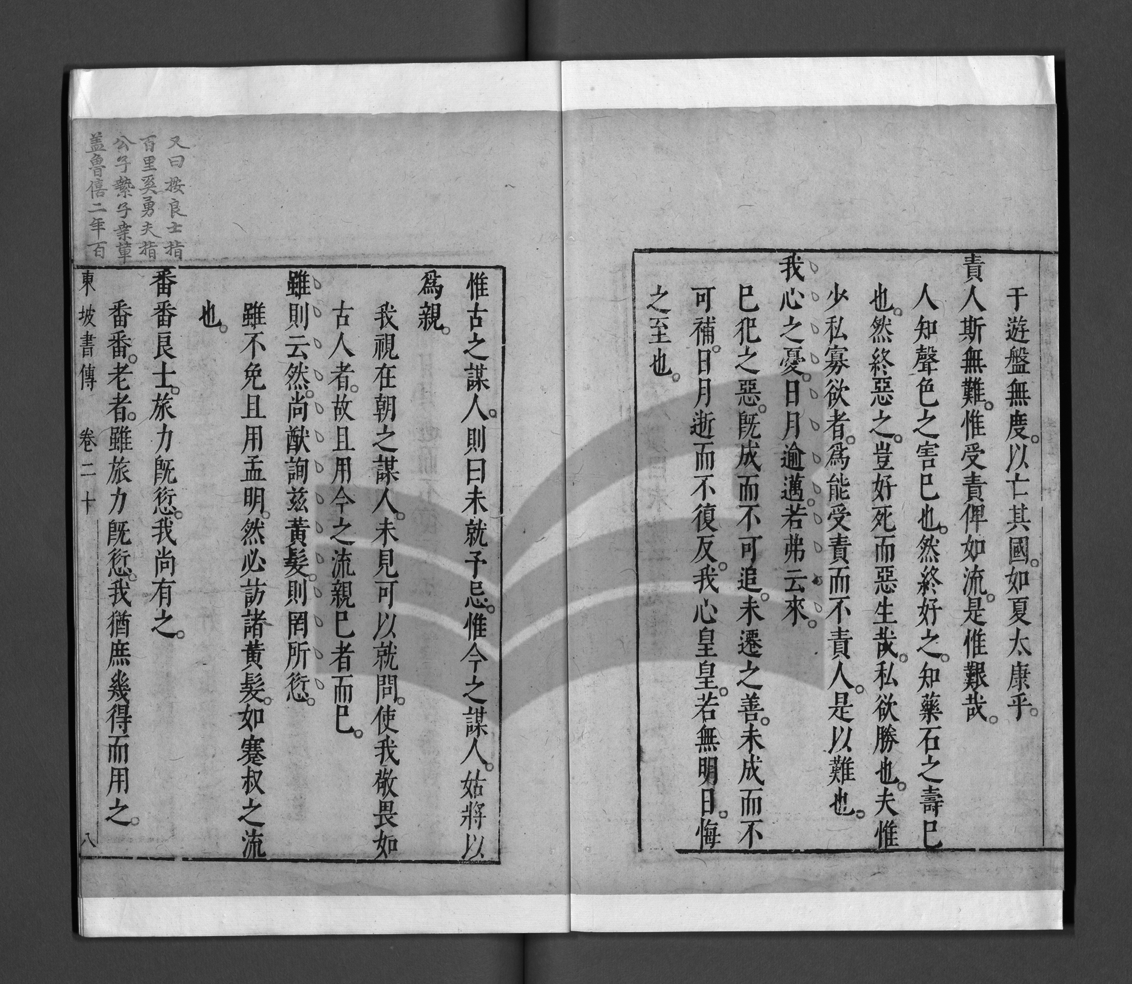 于遊盤無度。以亡其國。如夏太康乎。
責人斯無難。惟受責俾如流。是惟艱哉。
人知聲色之害已也。然終好之。知藥石之壽已
也。然終惡之。豈好死而惡生哉。私欲勝也。夫惟
少私寡欲者。爲能受責而不責人。是以難也。
我心之憂。日月逾邁。若弗云來。
已犯之惡。旣成而不可追。未遷之善。未成而不
可補。日月逝而不復反。我心皇皇。若無明日。悔
之至也。
惟古之謀人。則曰未就予忌。惟今之謀人。姑將以
爲親。
我視在朝之謀人。未見可以就問。使我敬畏如
古人者。故且用今之流親已者而已。
雖則云然。尚猷詢茲黃髮。則罔所愆。
雖不免且用孟明。然必訪諸黃髮。如蹇叔之流
也。
番番良士。旅力旣愆。我尚有之。
番番。老者。雖旅力旣愆。我猶庶幾得而用之。
東坡書傳 卷二十 八
又曰按良士指
百里奚勇夫指
公子縶子桒葦
盖魯僖二年百